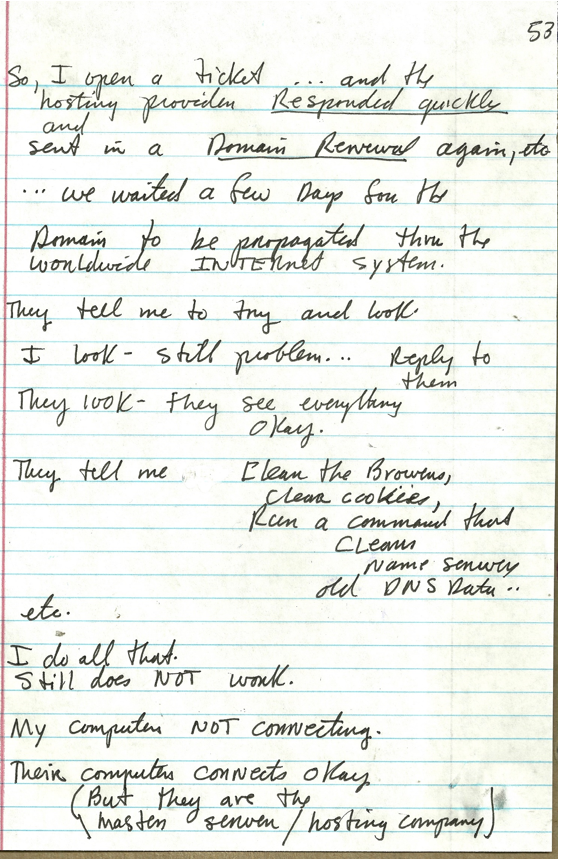 53
So, I open a ticket ... and the
hosting provider Responded quickly
and
sent in a Domain Renewal again, etc
... we waited a few Days for the
Domain to be propagated thru the
worldwide INTERnet system.
They tell me to try and look.
I look - still problem... Reply to
them
They look - they see everything
okay.
They tell me Clean the Browsers,
clear cookies,
Run a command that
Cleans
Name server
old DNS Data..
etc.
I do all that.
Still does NOT work.
My computer NOT connecting.
Their computer connects okay
(But they are the
master server / hosting company)